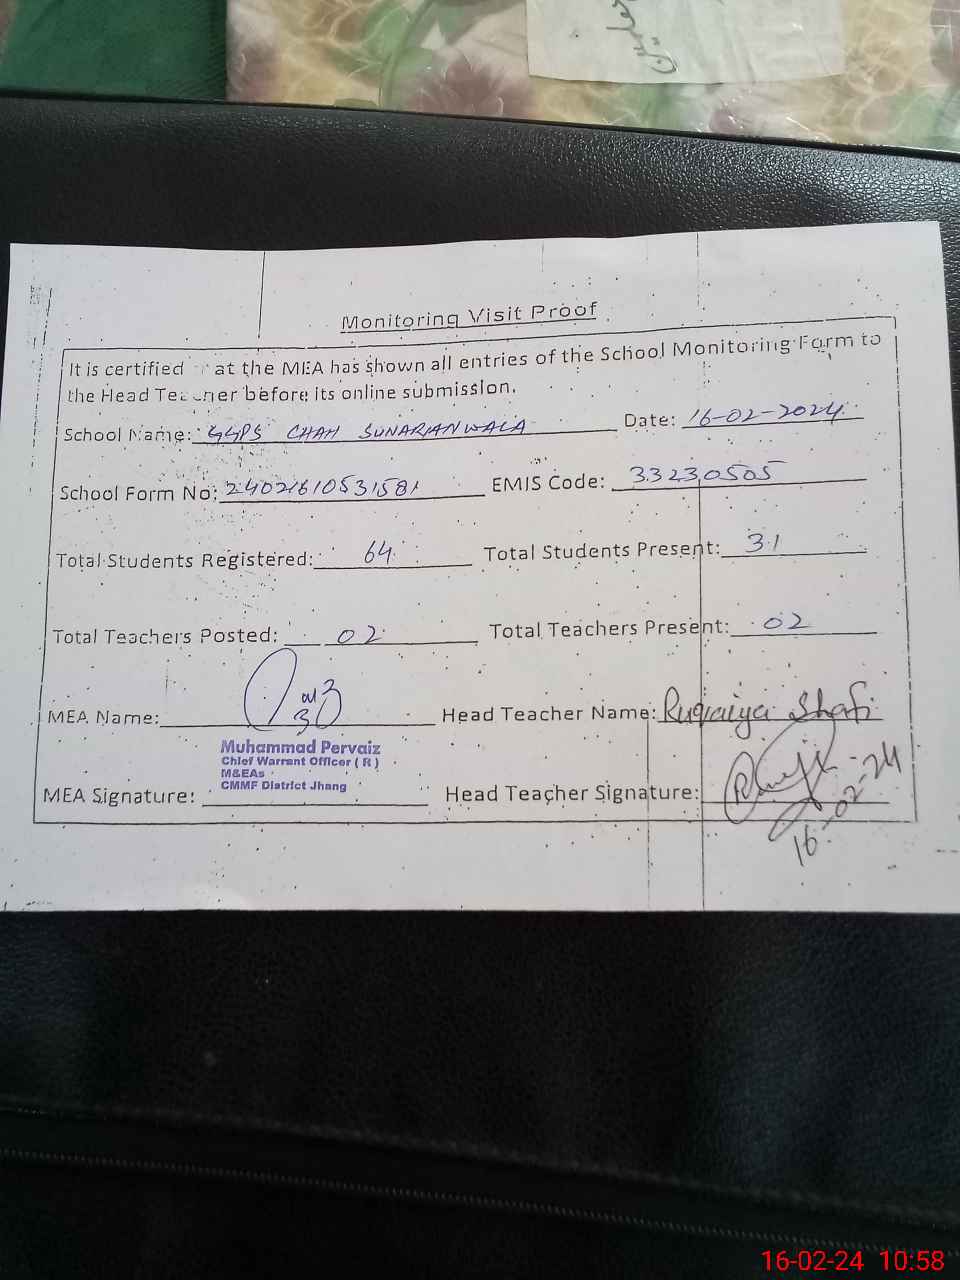 Monitoring Visit Proof
It is certified at the MEA has shown all entries of the School Monitoring Form to
the Head Teacher before its online submission.
School Name: GGPS CHAH SUNARIANWALA Date: 16-02-2024
School Form No: 24021610531581 EMIS Code: 33230505
Total Students Registered: 64 Total Students Present: 31
Total Teachers Posted: 02 Total Teachers Present: 02
MEA Name: Head Teacher Name: Ruqaiya Shafi
Muhammad Pervaiz
Chief Warrant Officer ( R )
M&EAs
CMMF District Jhang
MEA Signature: Head Teacher Signature:
16-02-24
16-02-24 10:58